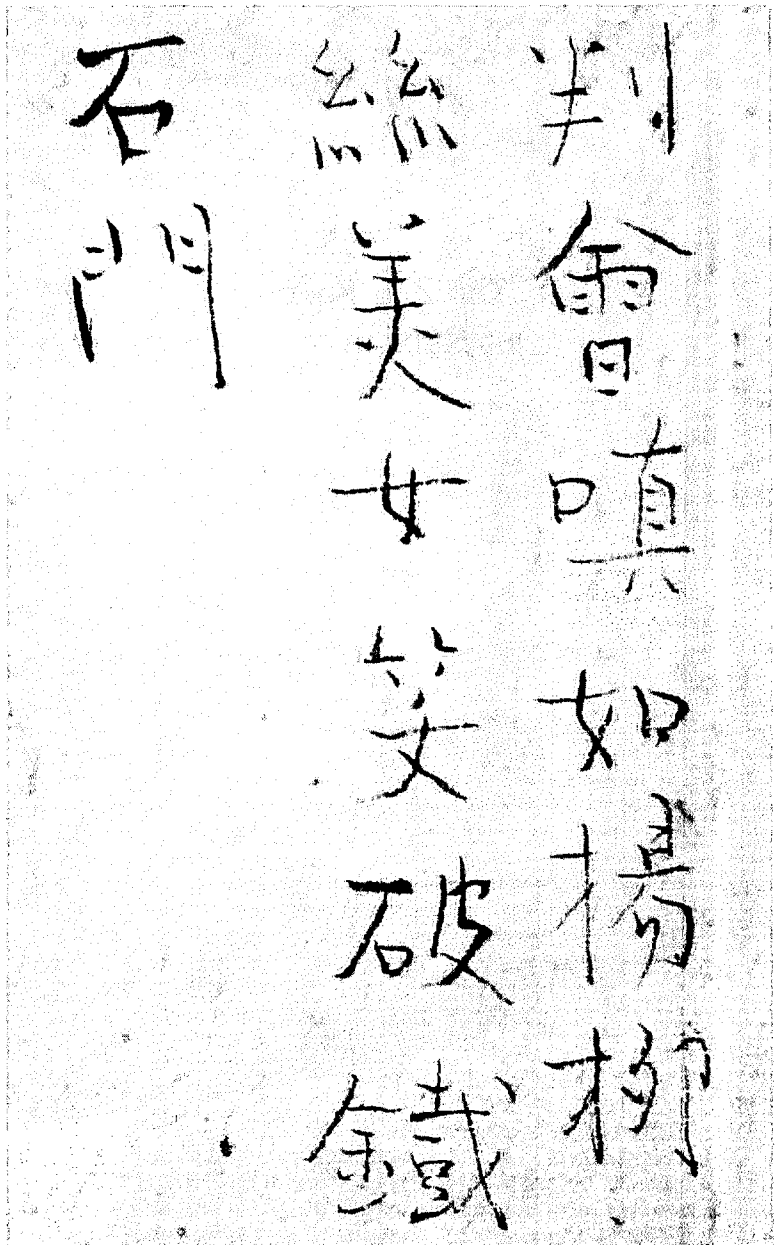 判會嗔如揚柳
絲美女笑破鐵
石門